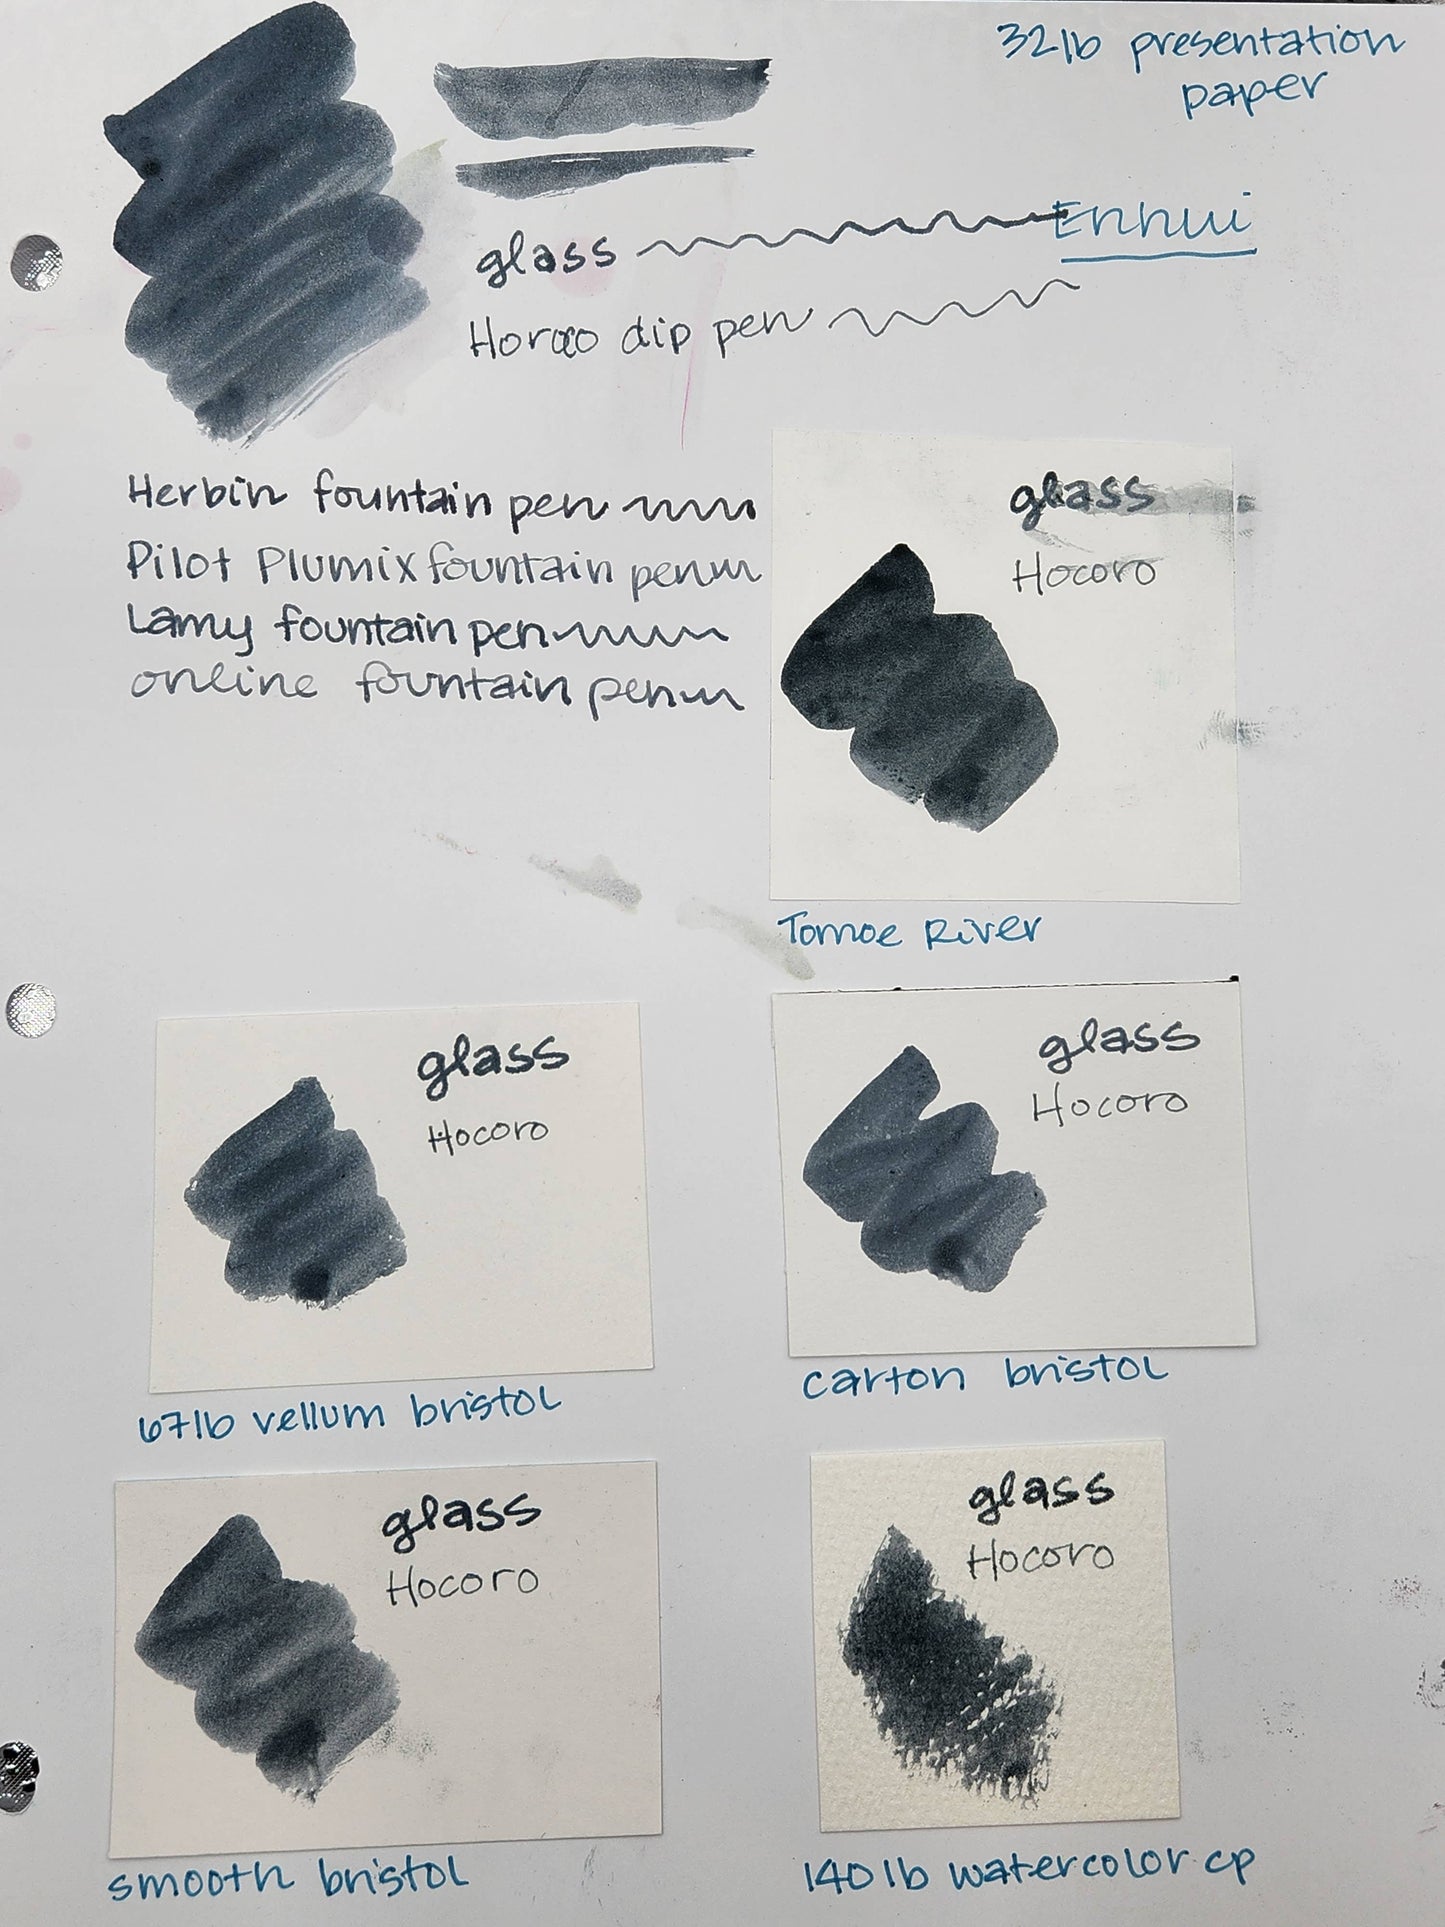 32lb presentation
paper
Ennui
glass
Horoco dip pen
Herbin fountain pen
Pilot Plumix fountain pen
Lamy fountain pen
online fountain pen
glass
Hocoro
Tomoe River
glass
Hocoro
67lb vellum bristol
glass
Hocoro
carton bristol
glass
Hocoro
smooth bristol
glass
Hocoro
140lb watercolor cp